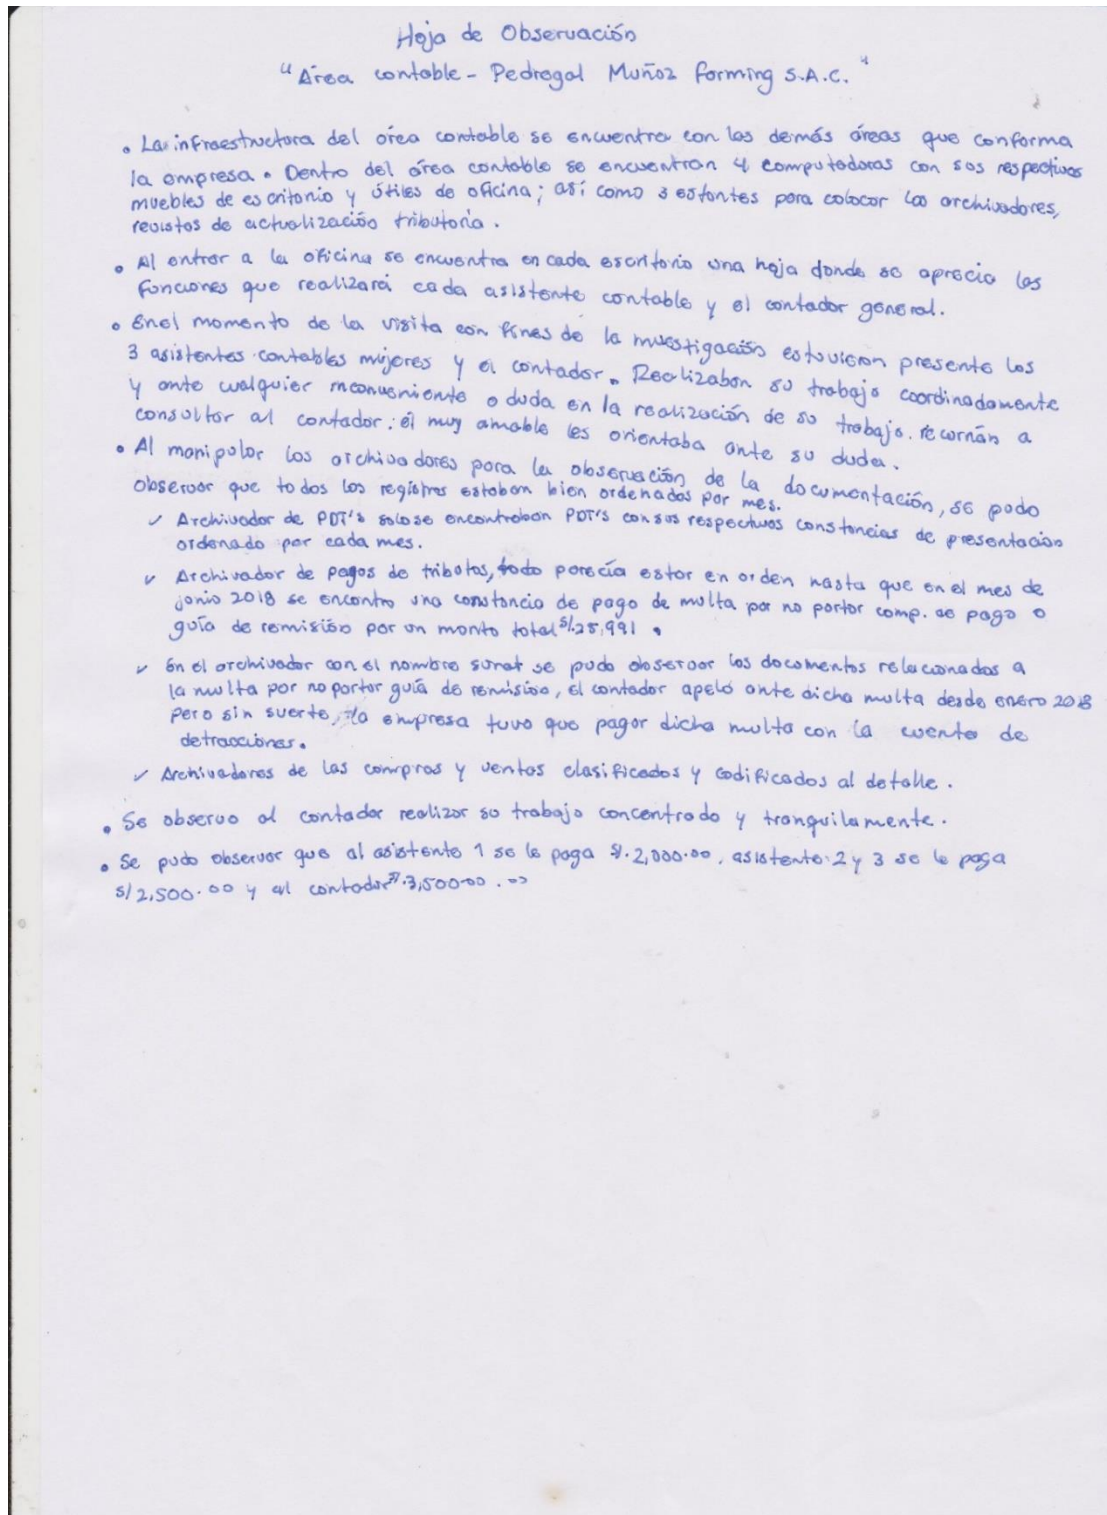 Hoja de Observación
"Área contable - Pedregal Muñoz Farming S.A.C."
• La infraestructura del área contable se encuentra con las demás áreas que conforma
la empresa. Dentro del área contable se encuentran 4 computadoras con sus respectivos
muebles de escritorio y útiles de oficina; así como 3 estantes para colocar los archivadores,
revistas de actualización tributaria.
• Al entrar a la oficina se encuentra en cada escritorio una hoja donde se aprecia las
funciones que realizará cada asistente contable y el contador general.
• En el momento de la visita con fines de la investigación estuvieron presente los
3 asistentes contables mujeres y el contador. Realizaban su trabajo coordinadamente
y ante cualquier inconveniente o duda en la realización de su trabajo. recurrían a
consultar al contador; él muy amable les orientaba ante su duda.
• Al manipular los archivadores para la observación de la documentación, se pudo
observar que todos los registros estaban bien ordenados por mes.
✓ Archivador de PDT's solo se encontraban PDT's con sus respectivos constancias de presentación
ordenado por cada mes.
✓ Archivador de pagos de tributos, todo parecía estar en orden hasta que en el mes de
junio 2018 se encontro una constancia de pago de multa por no portar comp. de pago o
guía de remisión por un monto total S/.25,991.
✓ En el archivador con el nombre sunat se pudo observar los documentos relacionados a
la multa por no portar guía de remisión, el contador apeló ante dicha multa desde enero 2018
pero sin suerte, la empresa tuvo que pagar dicha multa con la cuenta de
detracciones.
✓ Archivadores de las compras y ventas clasificados y codificados al detalle.
• Se observo al contador realizar su trabajo concentrado y tranquilamente.
• Se pudo observar que al asistente 1 se le paga S/.2,000.00, asistente 2 y 3 se le paga
S/2,500.00 y al contador S/.3,500.00.